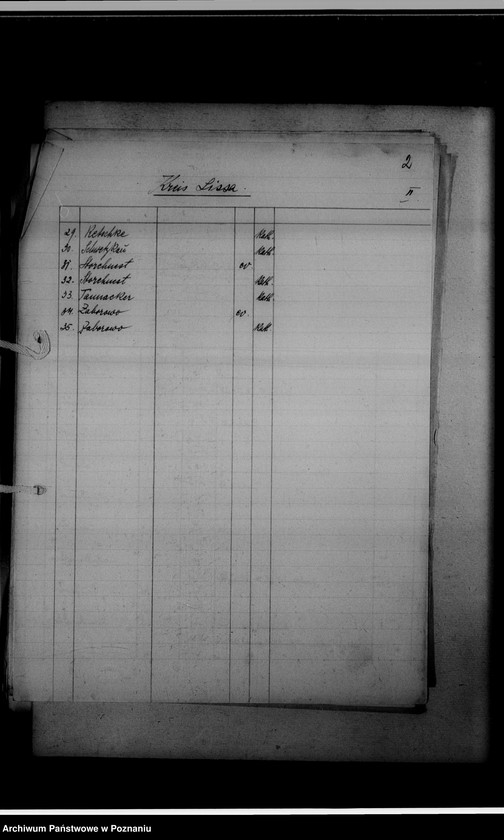 2
Kreis Lissa.
II
29. Retschke Kath.
30. Schwetzkau Kath.
31. Storchnest ev
32. Storchnest Kath.
33. Tannacker Kath.
34. Zaborowo ev.
35. Zaborowo Kath.
Archiwum Państwowe w Poznaniu